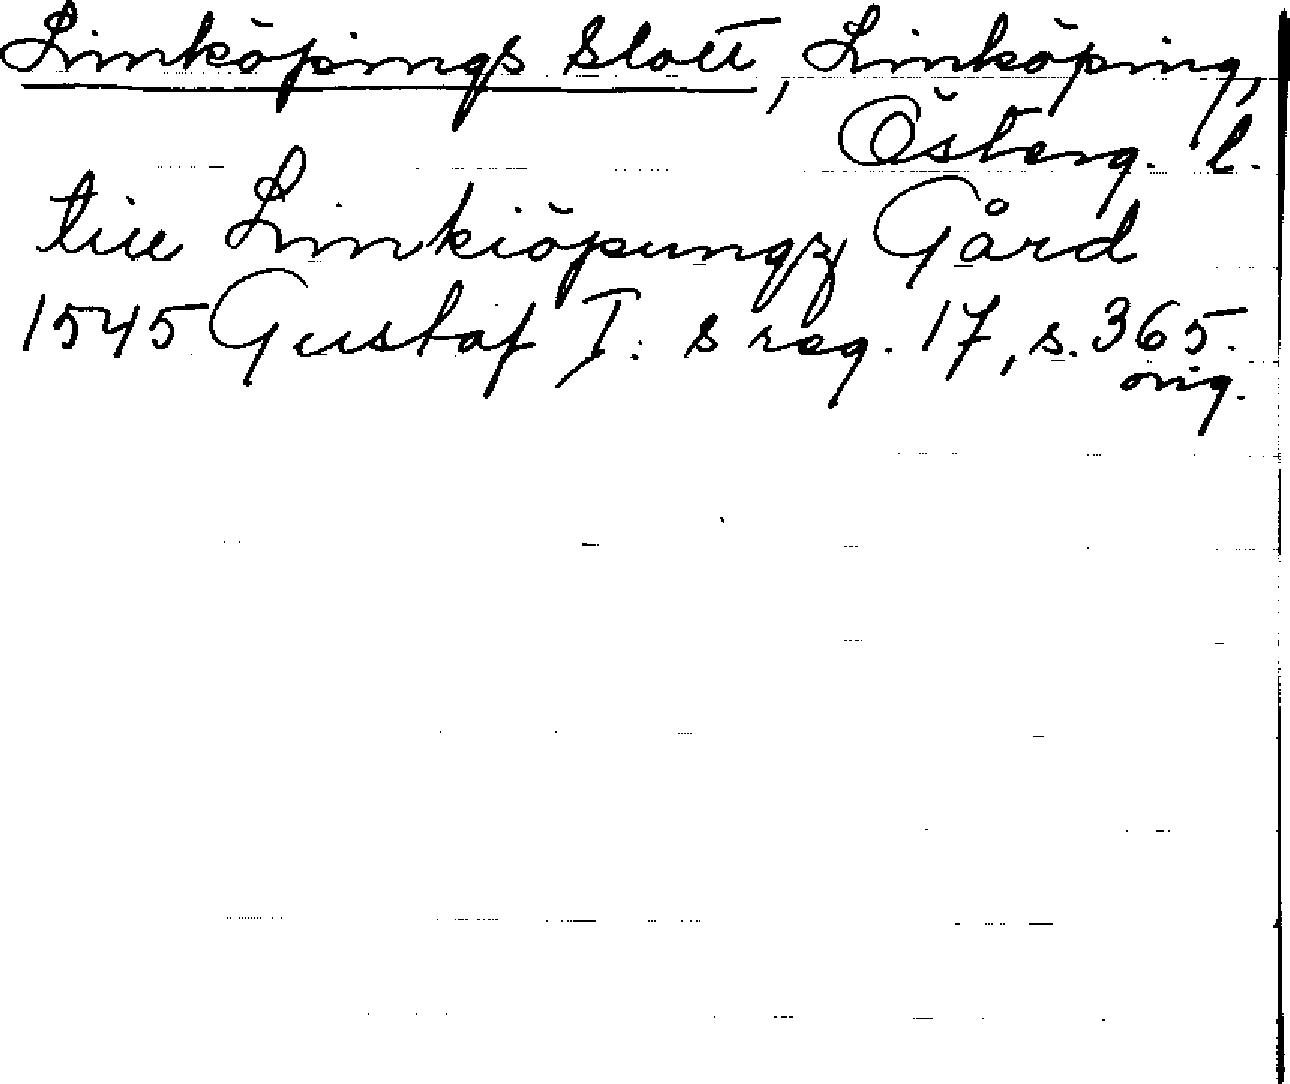 Linköpings Slott, Linköping,
Österg. l.
till Linkiöpungz Gård
1545 Gustaf I:s reg. 17, s. 365.
orig.